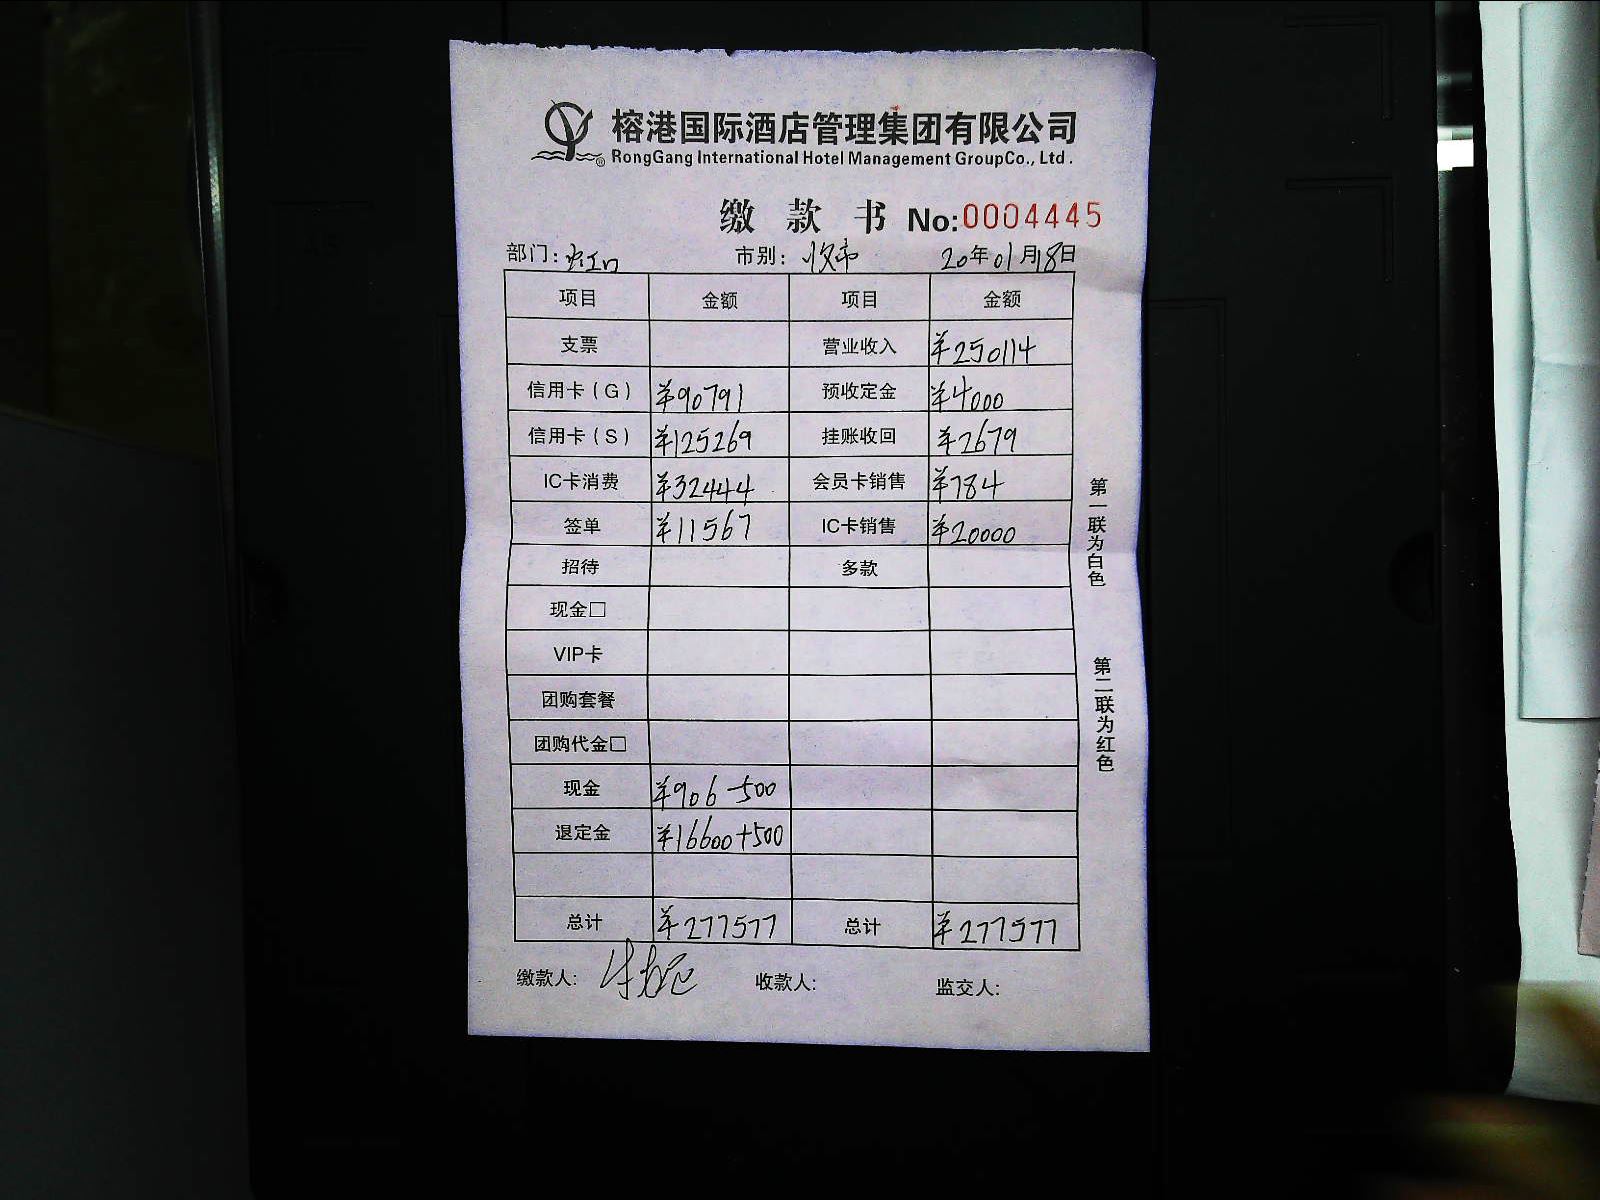 榕港国际酒店管理集团有限公司
RongGang International Hotel Management GroupCo., Ltd.
缴款书 No:0004445
部门:虹口 市别:收市 20年01月18日
项目 金额 项目 金额
支票 营业收入 ¥250114
信用卡(G) ¥90791 预收定金 ¥4000
信用卡(S) ¥125269 挂账收回 ¥2679
IC卡消费 ¥32444 会员卡销售 ¥784
签单 ¥11567 IC卡销售 ¥20000
招待 多款
现金□
VIP卡
团购套餐
团购代金□
现金 ¥906-500
退定金 ¥16600+500
总计 ¥277577 总计 ¥277577
缴款人: 收款人: 监交人:
第一联为白色
第二联为红色